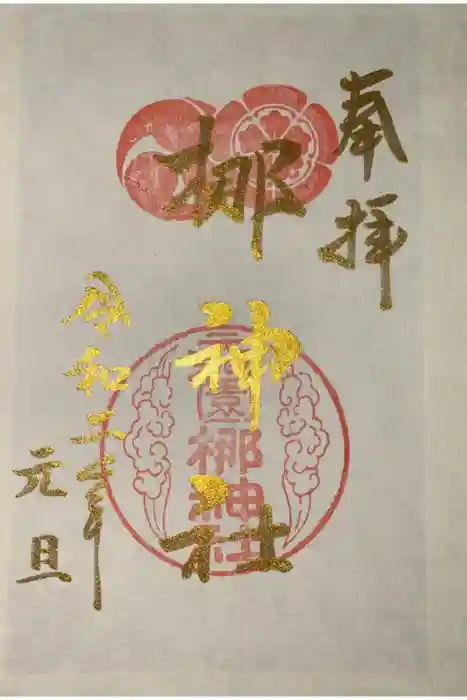 奉拝
梛神社
令和三年
元旦
元祇園梛神社